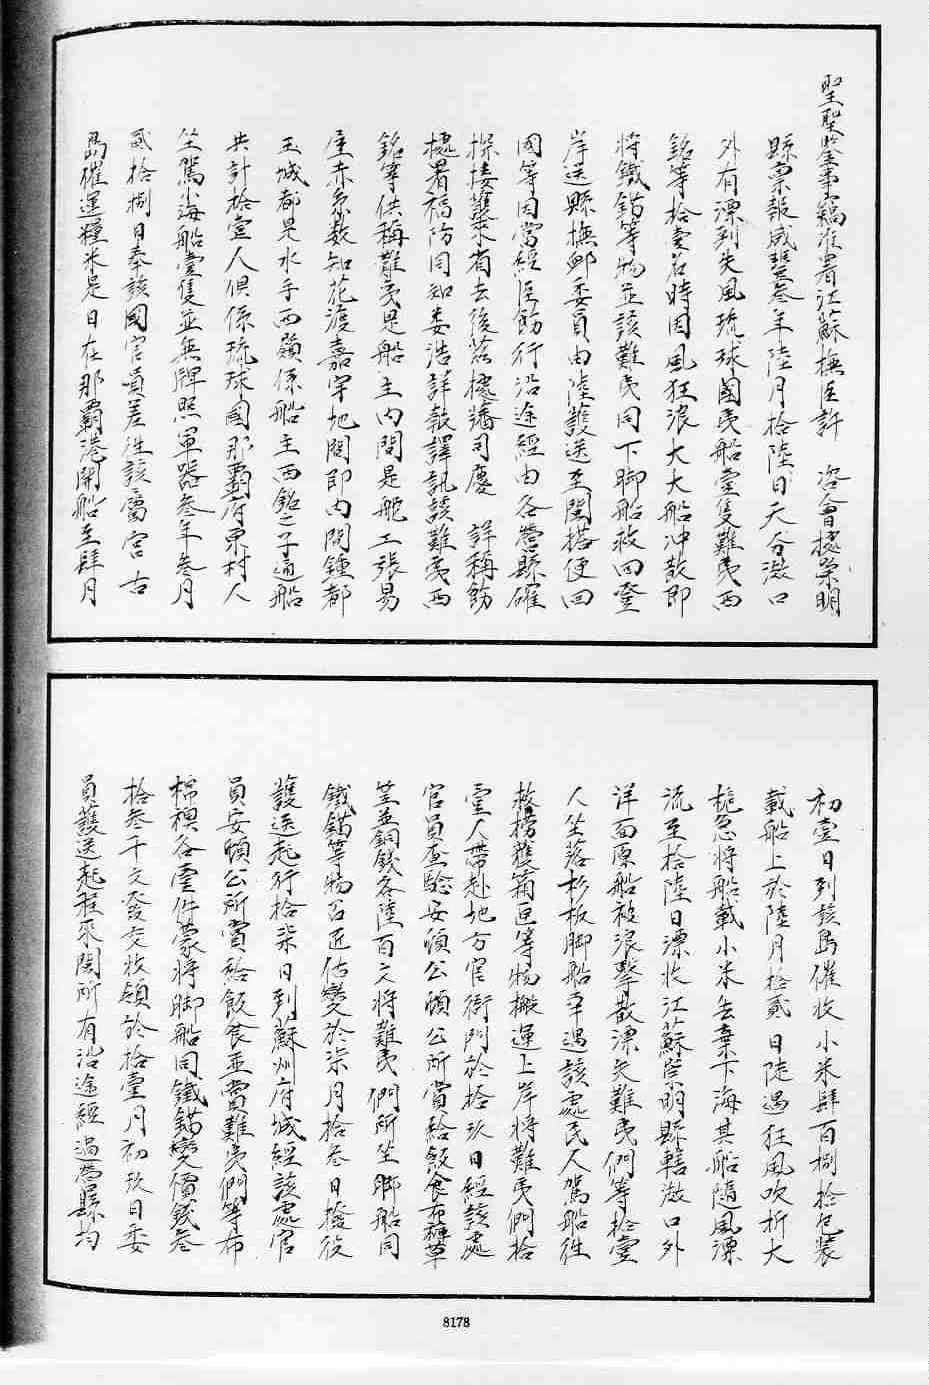 聖鑒事竊准署江蘇撫臣許　咨會據崇明
縣稟報咸豐叁年陸月拾陸日天分澂口
外有漂到失風琉球國夷船壹隻難夷西
銘等拾壹名時因風狂浪大大船冲散即
將鐵錨等物並該難夷同下脚船救回登
岸送縣撫卹委員由陸護送至閩搭便回
國等因當經臣飭行沿途經由各營縣確
探接護來省去後茲據藩司慶　詳稱飭
據署福防同知婁浩詳報譯訊該難夷西
銘等供稱難夷是船主內間是舵工張易
屋赤糸数知花渡嘉宇地閣即內間鍾都
玉城都是水手西嶺係船主西銘之子通船
共計拾壹人俱係琉球國那霸府東村人
坐駕小海船壹隻並無牌照軍器叁年叁月
貳拾捌日奉該國官員差往該屬宮古
島催運糧米是日在那霸港開船至肆月
初壹日到該島催收小米肆百捌拾包裝
載船上於陸月拾貳日陡遇狂風吹折大
桅急將船載小米丟棄下海其船隨風漂
流至拾陸日漂收江蘇崇明縣轄澂口外
洋面原船被浪擊散漂失難夷們等拾壹
人坐落杉板脚船幸遇該處民人駕船往
救撈獲箱匣等物搬運上岸將難夷們拾
壹人帶赴地方官衙門於拾玖日經該處
官員查驗安頓公所賞給飯食布褲草
笠並銅錢各陸百文將難夷們所坐脚船同
鐵錨等物召匠估變於柒月拾叁日撥役
護送起行拾柒日到蘇州府城經該處官
員安頓公所賞給飯食並賞難夷們等布
棉襖各壹件蒙將脚船同鐵錨變價錢叁
拾叁千文發交收領於拾壹月初玖日委
員護送起程來閩所有沿途經過各縣均
8178